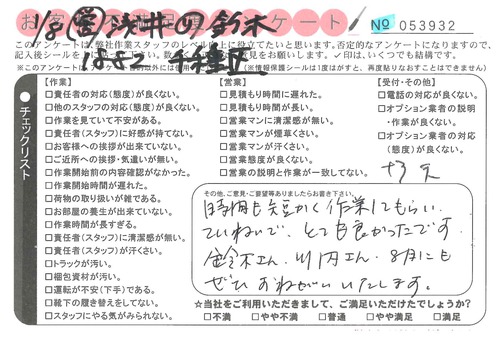 お客
アンケート
№ 053932
1/8 営 浅井 鈴木
千種区
このアンケートは、弊社作業スタッフのレベル向上に役立てたいと思います。否定的なアンケートになりますので、
※このアンケート
(※情報保護シールは1度はがすと、再度貼りなおすことはできません)
チェックリスト
【作業】
□責任者の対応(態度)が良くない。
□他のスタッフの対応(態度)が良くない。
□作業を見ていて不安がある。
□責任者(スタッフ)に好感が持てない。
□お客様への挨拶が出来ていない。
□ご近所への挨拶・気遣いが無い。
□作業開始前の内容確認がなかった。
□作業開始時間が遅れた。
□荷物の取り扱いが雑である。
□お部屋の養生が出来ていない。
□作業時間が長すぎる。
□責任者(スタッフ)に清潔感が無い。
□責任者(スタッフ)が汗くさい。
□トラックが汚い。
□梱包資材が汚い。
□運転が不安(下手)である。
□靴下の履き替えをしてない。
□スタッフにやる気がみられない。
【営業】
□見積もり時間に遅れた。
□見積もり時間が長い。
□営業マンに清潔感が無い。
□営業マンが煙草くさい。
□営業マンが汗くさい。
□営業態度が良くない。
□営業の説明と作業が一致してない。
【受付・その他】
□電話の対応が良くない。
□オプション業者の説明
・作業が良くない。
□オプション業者の対応
(態度)が良くない。
その他、ご意見・ご要望等ありましたらお書き下さい。
時間も短かく作業してもらい、
ていねいで、とても良かったです。
鈴木さん、川内さん、8月にも
ぜひおねがいいたします。
☆当社をご利用いただきまして、ご満足いただけたでしょうか?
□不満 □やや不満 □普通 □やや満足 □満足